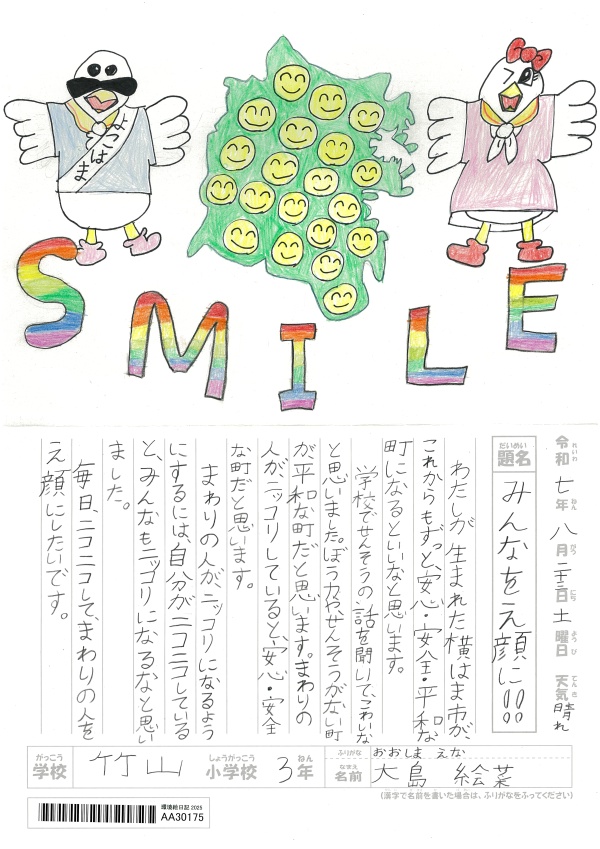 よこはま
SMILE
令和七年八月二十三日土曜日 天気 晴れ
れいわ ねん がつ にち ようび てんき
だいめい
題名 みんなをえ顔に!!
わたしが生まれた横はま市が、
これからもずっと、安心・安全・平和な
町になるといいなと思います。
学校でせんそうの話を聞いて、こわいな
と思いました。ぼう力や、せんそうがない町
が、平和な町だと思います。まわりの
人がニッコリしていると、安心・安全
な町だと思います。
まわりの人がニッコリになるよう
にするには、自分がニコニコしている
と、みんなもニッコリになるなと思い
ました。
毎日、ニコニコして、まわりの人を
え顔にしたいです。
がっこう しょうがっこう ねん ふりがな おおしま えな
学校 竹山 小学校 3年 なまえ 名前 大島 絵菜
(漢字で名前を書いた場合は、ふりがなをふってください)
環境絵日記 2025
AA30175